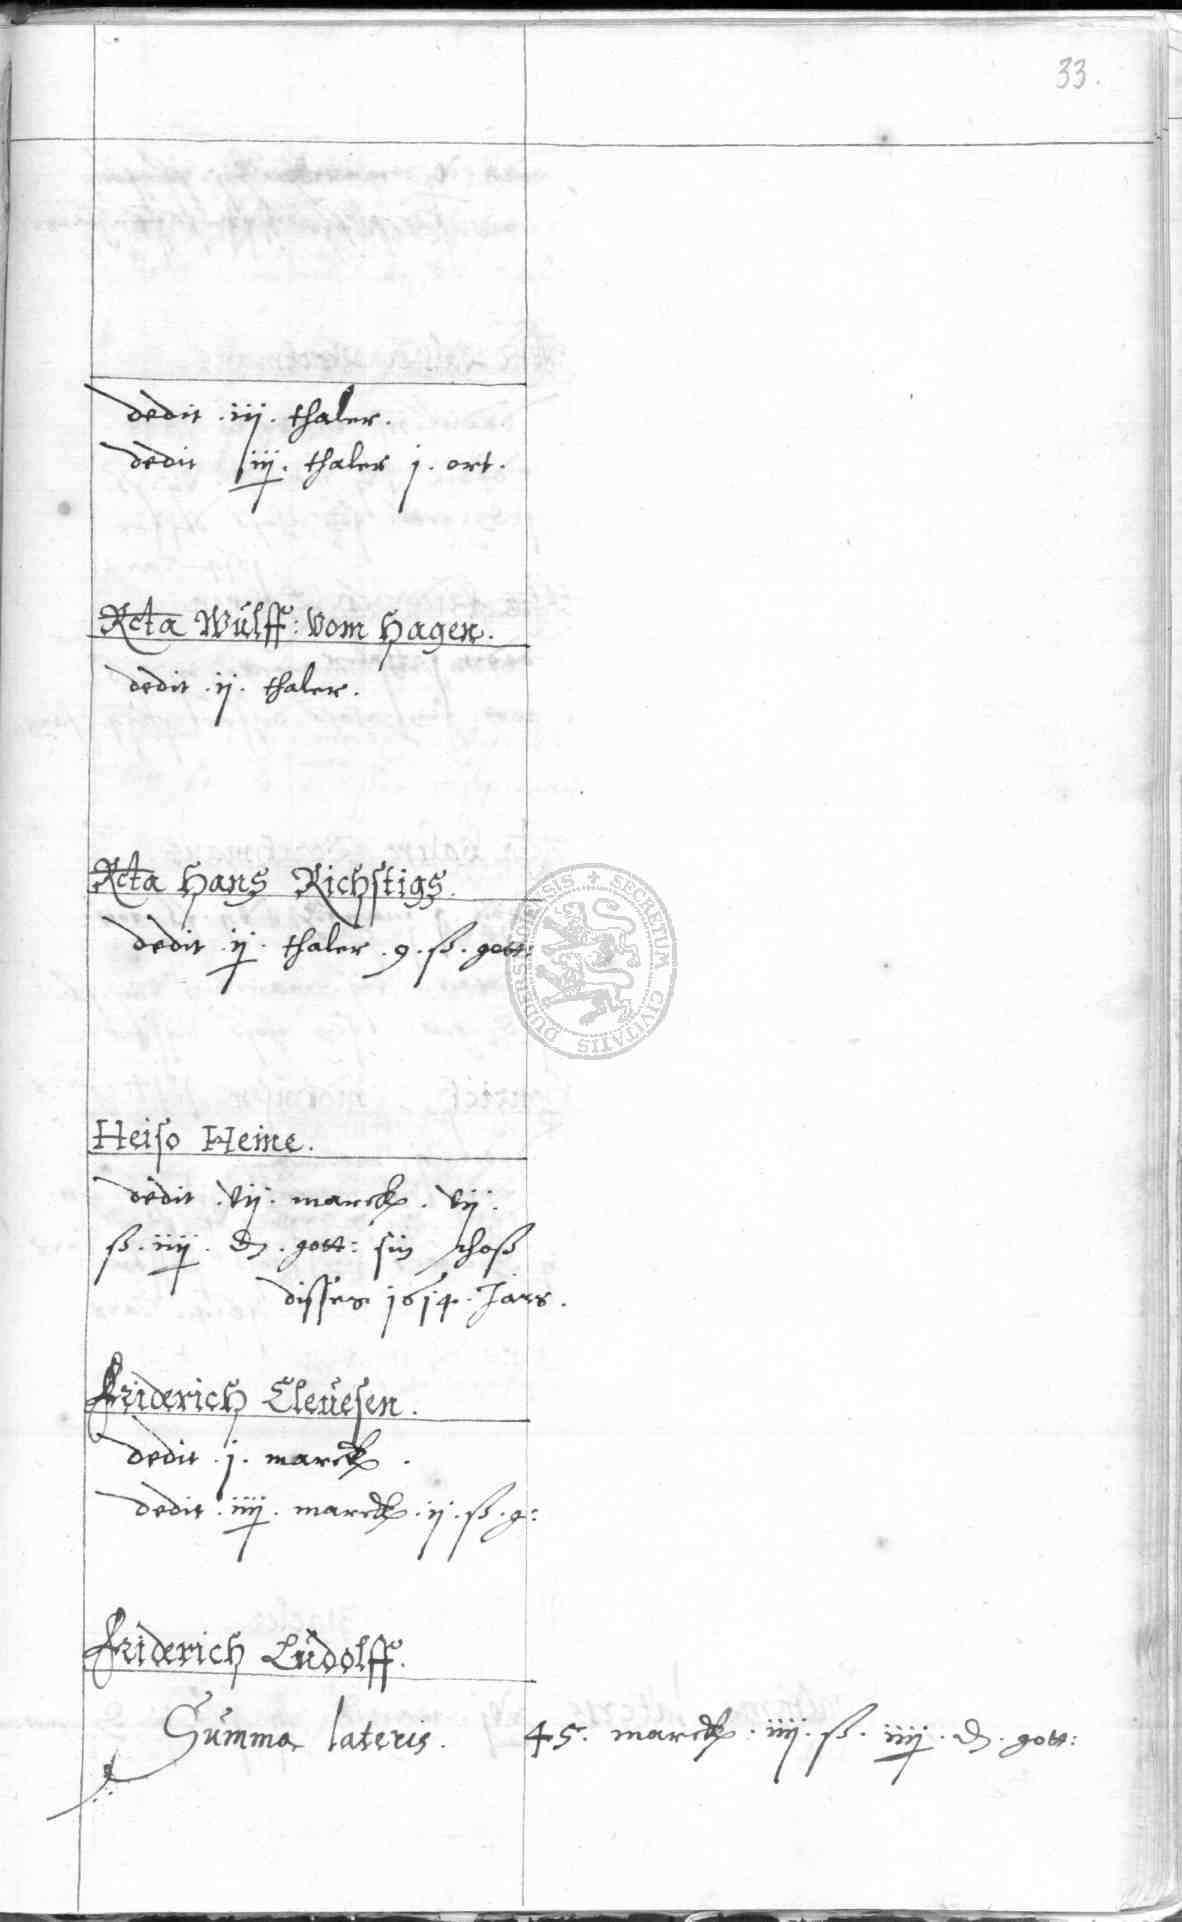 33.
dedit . iij . thaler.
dedit iij . thaler j . ort.
Rcta Wulff: vom Hagen.
dedit . ij . thaler.
Rcta Hans Richstigs.
dedit . ij . thaler . 9 . ß . gott:
SECRETUM CIVITATIS DUDERSTADENSIS
Heiso Heine.
dedit . vij . marck . vij .
ß . iiij . d . gott: sin schoß
disses 1614. Jars.
Friderich Clevesen.
dedit . j . marck .
dedit . iiij . marck . ij . ß . g:
Friderich Ludolff.
Summa lateris. 45. marck . iiij . ß . iiij . d . gott: